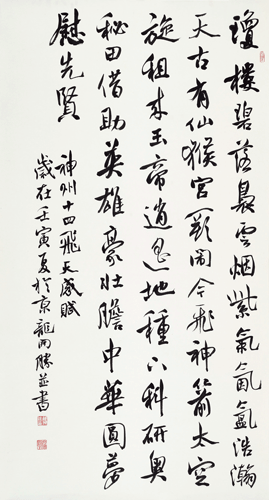 瓊樓碧落裊雲烟紫氣氤氳浩瀚
天古有仙猴宮闹今飛神箭太空
旋租來玉帝逍遥地種下科研奥
秘田借助英雄豪壯膽中華圓夢
慰先賢
神州十四飛天感賦
歲在壬寅夏於京龍勝並書